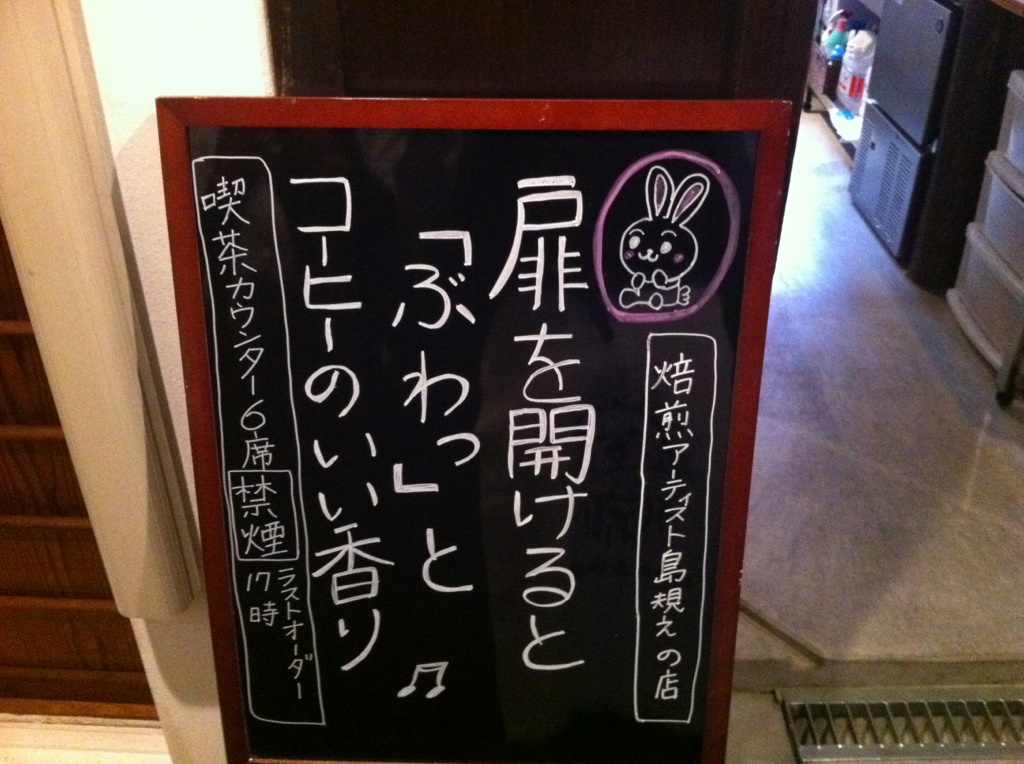 焙煎アーティスト島規之の店
扉を開けると
「ぶわっ」と
コーヒーのいい香り
喫茶カウンター6席
禁煙
ラストオーダー
17時